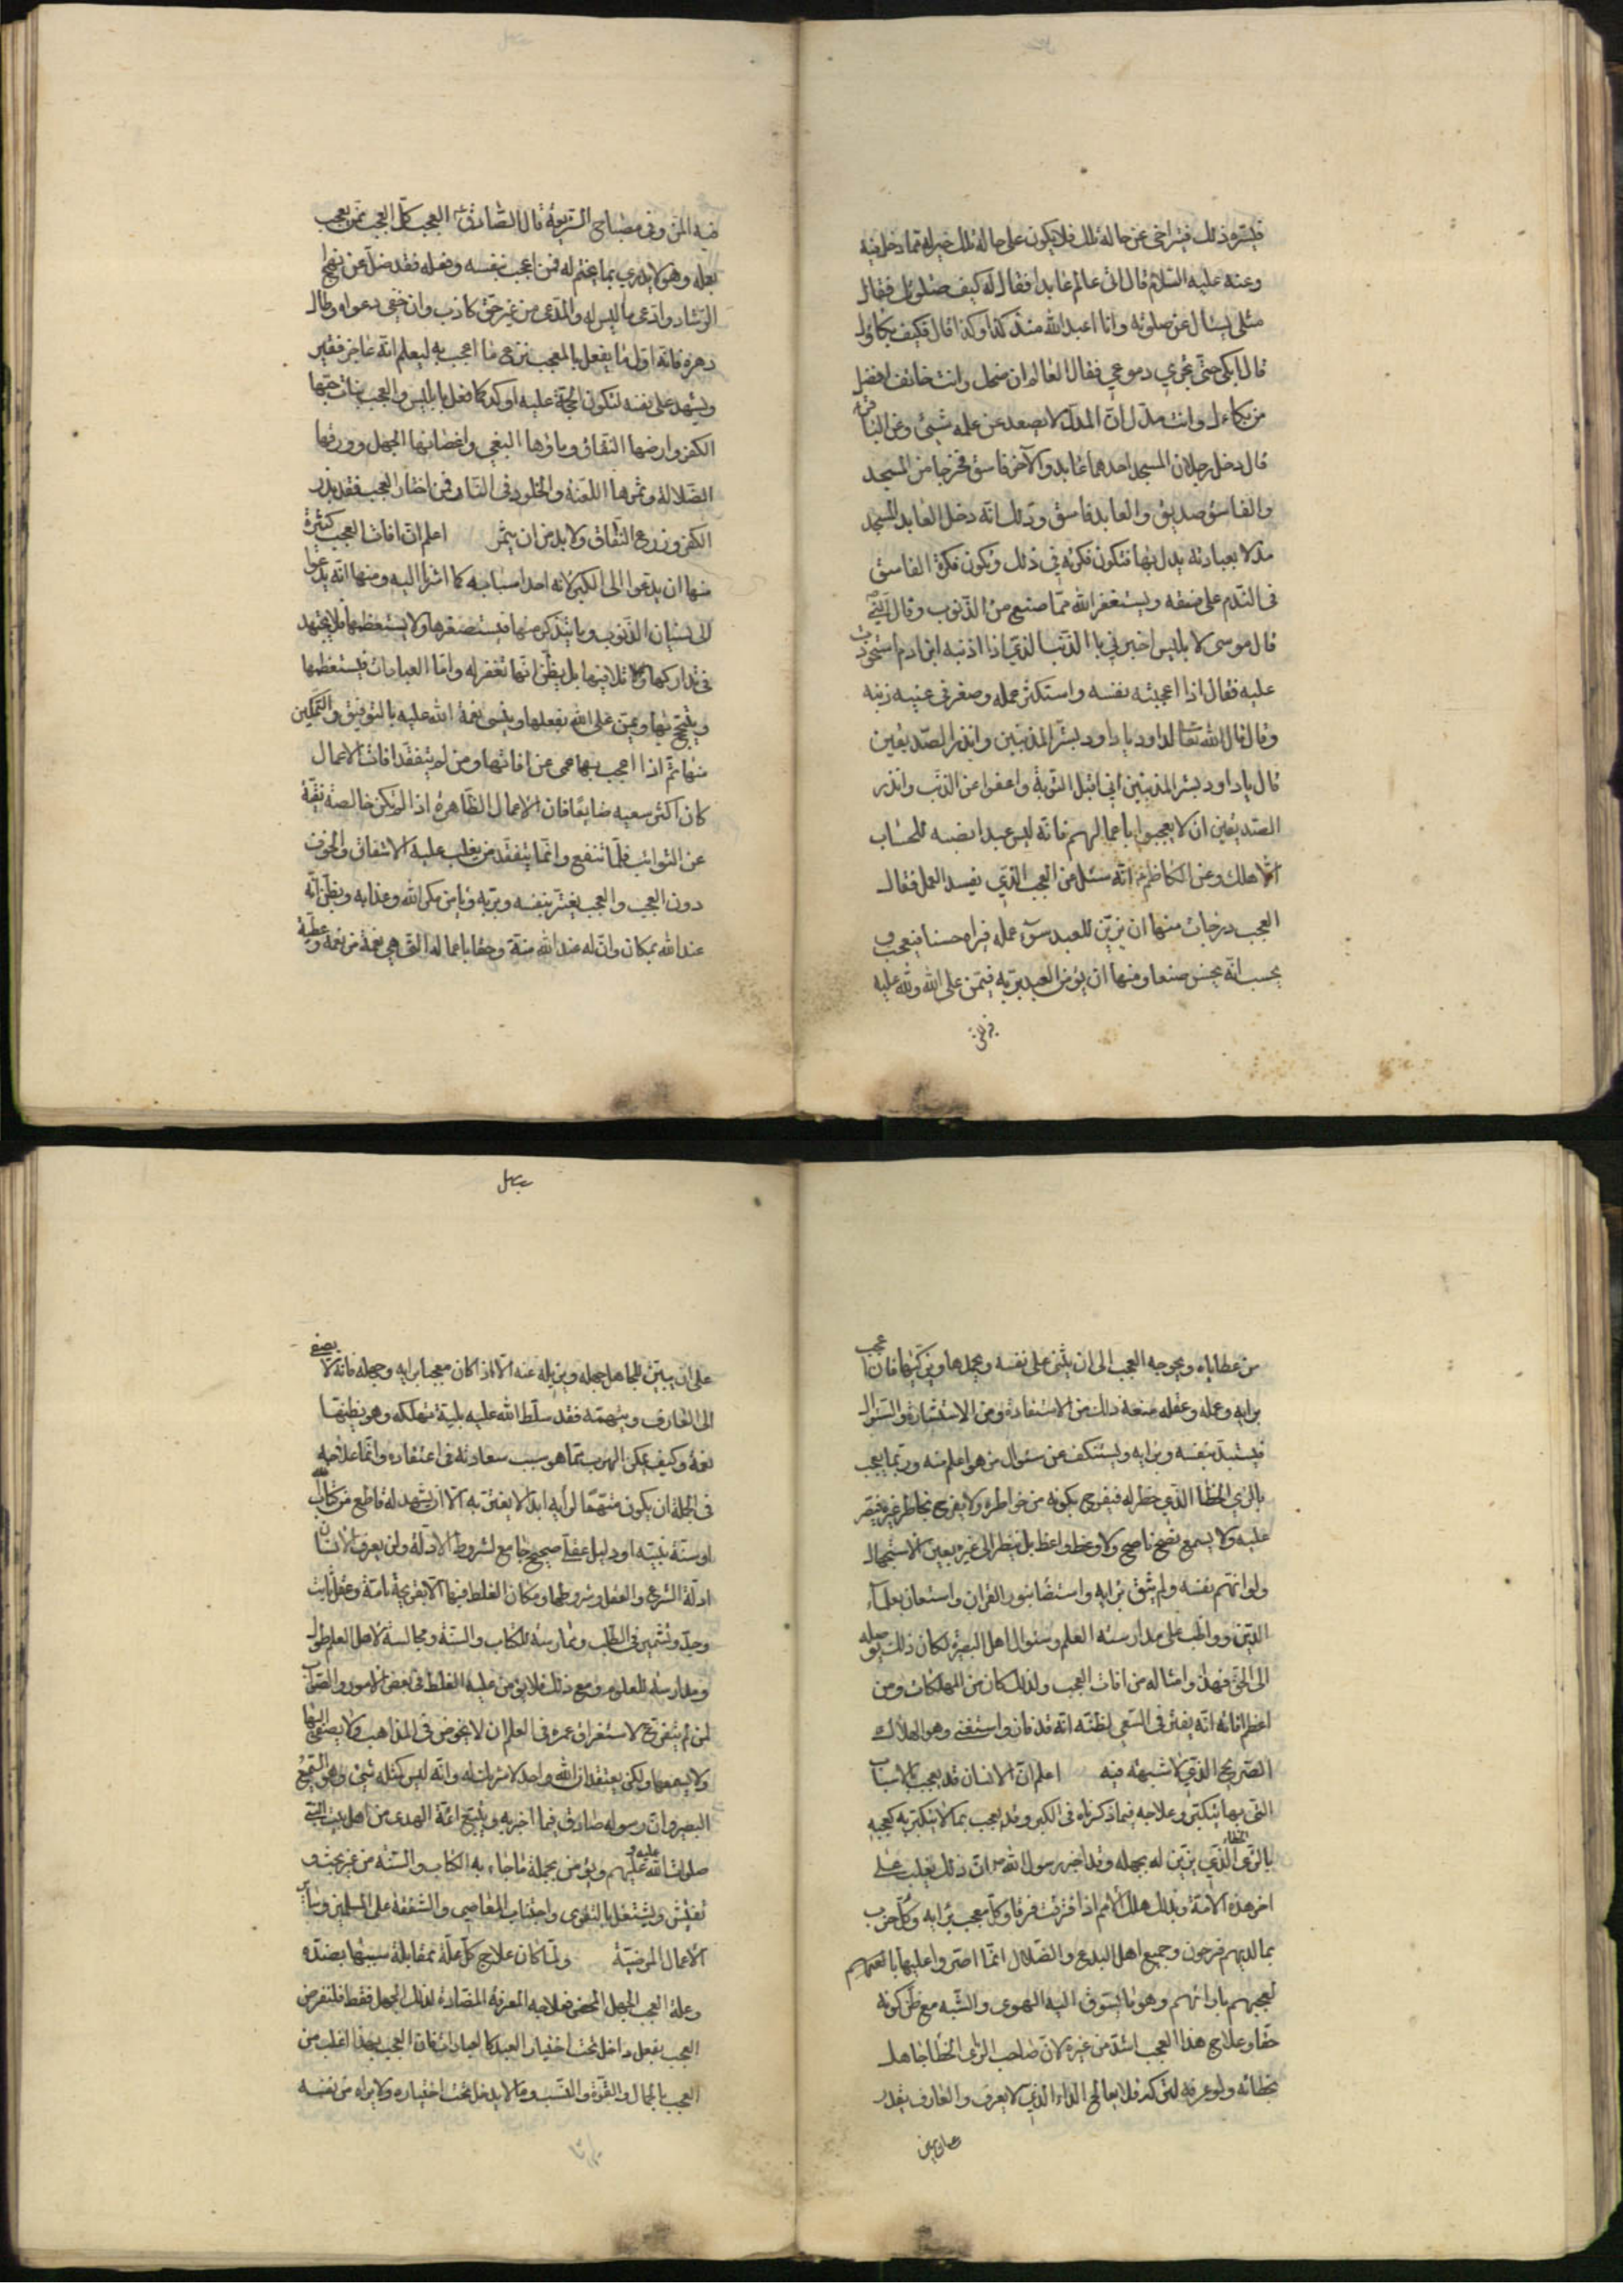 فيسره ذلك فيتراخى عن حاله تلك فلان يكون على حاله تلك خير له مما دخل فيه
وعنه عليه السلام قال اتى عالم عابدا فقال له كيف صلوتك فقال
مثلي يسئال عن صلوته وانا اعبد الله منذ كذا وكذا قال فكيف بكاؤك
قال ابكي حتى تجري دموعي فقال العالم ان ضحكك وانت خائف افضل
من بكاءك وانت مدل ان المدل لا يصعد من عمله شيئ وعن الباقر
قال دخل رجلان المسجد احدهما عابد والآخر فاسق فخرجا من المسجد
والفاسق صديق والعابد فاسق وذلك انه دخل العابد المسجد
مدلا بعبادته يدل بها فتكون فكرته في ذلك ويكون فكرة الفاسق
في التندم على فسقه ويستغفر الله مما صنع من الذنوب وقال النبي
قال موسى لابليس اخبرني بالذنب الذي اذا اذنبه ابن ادم استحوذت
عليه فقال اذا اعجبته نفسه واستكثر عمله وصغر في عينيه ذنبه
وقال قال الله تعالى لداود يا داود بشر المذنبين وانذر الصديقين
قال يا داود بشر المذنبين اني اقبل التوبة واعفوا عن الذنب وانذر
الصديقين ان لا يعجبوا باعمالهم فانه ليس عبد انصبه للحساب
الا هلك وعن الكاظم انه سئل من العجب الذي يفسد العمل فقال
العجب درجات منها ان يزين للعبد سوء عمله فيراه حسنا فيعجبه و
يحسب انه يحسن صنعا ومنها ان يؤمن العبد بربه فيمن على الله ولله عليه
فيه المن وفي مصباح الشريعة قال الصادق العجب كل العجب ممن يعجب
بعمله وهو لا يدري بما يختم له فمن اعجب بنفسه وفعله فقد ضل عن نهج
الرشاد وادعى ما ليس له والمدعي من غير حق كاذب وان خفي دعواه وطال
دهره فانه اول ما يفعل بالمعجب نزع ما اعجب به ليعلم انه عاجز فقير
ويشهد على نفسه لتكون الحجة عليه اوكد كما فعل بابليس والعجب نبات حبها
الكفر وارضها النفاق وماؤها البغي واغصانها الجهل وورقها
الضلالة وثمرها اللعنة والخلود في النار فمن اختار العجب فقد بذر
الكفر وزرع النفاق ولا بد من ان يثمر اعلم ان افات العجب كثيرة
منها ان يدعوا الى الكبر لانه احد اسبابه كما اشرنا اليه ومنها انه يدعوا
الى نسيان الذنوب وما يتذكر منها فيستصغرها ولا يستعظمها فلا يجتهد
في تداركها وتلافيها بل يظن انها تغفر له واما العبادات فيستعظمها
ويبتهج بها ويمن على الله بفعلها وينسى نعمة الله عليه بالتوفيق والتمكين
منها ثم اذا اعجب بها عمي عن افاتها ومن لم يتفقد افات الاعمال
كان اكثر سعيه ضايعا فان الاعمال الظاهرة اذا لم يكن خالصة نقية
عن الشوائب قلما تنفع وانما يتفقد من يغلب عليه الاشفاق والخوف
دون العجب والعجب يغتر بنفسه وبربه ويامن مكر الله وعذابه ويظن انه
عند الله بمكان وان له عند الله منة وحقا باعماله التي هي نعمة من نعمه وعطية
من عطاياه ويحوجه العجب الى ان يثني على نفسه ويحمدها ويزكيها فان عجب
برايه وعمله وعقله منعه ذلك من الاستفادة ومن الاستشارة والسؤال
فيستبد بنفسه وبرايه ويستنكف من سئوال من هو اعلم منه وربما يعجب
بالراي الخطا الذي خطر له فيفرح بكونه من خواطره ولا يفرح بخاطر غيره فيصر
عليه ولا يسمع نصح ناصح ولا وعظ واعظ بل ينظر الى غيره بعين الاستجهال
ولو اتهم نفسه ولم يثق برايه واستضاء بنور القران واستعان بعلماء
الدين وواظب على مدارسة العلم وسئوال اهل البصيرة لكان ذلك يوصله
الى الحق فهذا وامثاله من افات العجب ولذلك كان من المهلكات ومن
اعظم افاته انه يفتر في السعي لظنه انه قد فاز واستغنى وهو الهلاك
الصريح الذي لا شبهة فيه اعلم ان الانسان قد يعجب بالاسباب
التي بها يتكبر وعلاجه فيما ذكرناه في الكبر وقد يعجب بما لا يتكبر به كعجبه
بالراي الخطاء الذي يزين له بجهله وقد اخبر رسول الله ص ان ذلك يغلب على
اخر هذه الامة وبذلك هلك الامم اذ افترقت فرقا وكل معجب برايه وكل حزب
بما لديهم فرحون وجميع اهل البدع والضلال انما اصروا عليها بانفسهم
لعجبهم بارائهم وهو ما يسوق اليه الهوى والشبه مع ظن كونه
حقا وعلاج هذا العجب اشد من غيره لان صاحب الراي الخطا جاهل
بخطائه ولو عرفه لتركه فلا يعالج الداء الذي لا يعرف والعارف يقدر
على ان يبين للجاهل جهله ويزيله عنه الا اذا كان معجبا برايه وجهله فانه لا يصغي
الى العارف ويتهمه فقد سلط الله عليه بلية تهلكه وهو يظنها
نعمة وكيف يمكن الهرب مما هو سبب سعادته في اعتقاده وانما علاجه
في الجملة ان يكون متهما لرأيه ابدا لا يغتر به الا ان يشهد له قاطع من كتاب الله
او سنة نبيه او دليل عقلي صحيح جامع لشروط الادلة ولن يعرف الانسان
ادلة الشرع والعقل وشروطها ومكان الغلط فيها الا بقريحة تامة وعقل ثابت
وجد وتشمير في الطلب وممارسة للكتاب والسنة ومجالسة لاهل العلم طول
ومدارسة للعلوم ومع ذلك فلا يؤمن عليه الغلط في بعض الامور والصواب
لمن لم يتفرغ لاستغراق عمره في العلم ان لا يخوض في المذاهب ولا يصغي اليها
ولا يسمعها ولكن يعتقد ان الله واحد لا شريك له وانه ليس كمثله شيئ وهو السميع
البصير وان رسوله صادق فيما اخبر به ويتبع ائمة الهدى من اهل بيت النبي
صلوات الله عليه وعليهم ويؤمن بجملة ما جاء به الكتاب والسنة من غير بحث و
تفتيش ويشتغل بالتقوى واجتناب المعاصي والشفقة على المسلمين وسائر
الاعمال المرضية ولما كان علاج كل علة بمقابلة سببها بضده
وعلة العجب الجهل المحض فعلاجه المعرفة المضادة لذلك الجهل فقط فلنفرض
العجب بفعل داخل تحت اختيار العبد كالعبادات فان العجب بهذا اغلب من
العجب بالجمال والقوة والنسب وما لا يدخل تحت اختياره ولا يراه من نفسه